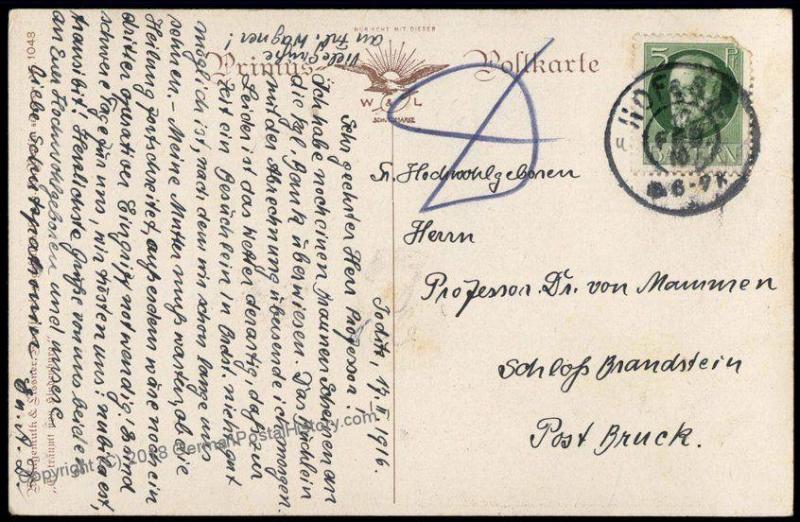 NUR ECHT MIT DIESER
Primus Postkarte
W & L
SCHUTZMARKE
5 Pf
BAYERN
HOF
6-7
Sr. Hochwohlgeboren
Herrn
Professor Dr. von Mammen
Schloß Brandstein
Post Bruck.
17. V. 1916.
Sehr geehrter Herr Professor!
Ich habe noch einen braunen Schein an
die kgl. Bank überwiesen. Das Büchlein
mit der Abrechnung übersende ich morgen.
Leider ist das Wetter derartig, daß zur
Zeit ein Gesüchlein in nicht gut
möglich ist, nach dem wir schon lange uns
sehnen. - Meine Mutter muß warten, ob die
Heilung fortschreitet, außerdem wäre noch ein
dritter operativer Eingriff notwendig. Es sind
schwere Tage für uns, wir trösten uns: nubila est,
transibit! Herzlichste Grüße von uns beiden
an Euer Hochwohlgeboren und unsere
liebe Schutzpatronin
Viele Grüße
an Frl. Wagner!
1048
Wohlgemuth & Lissner,
Copyright (C) 2018 GermanPostalHistory.com